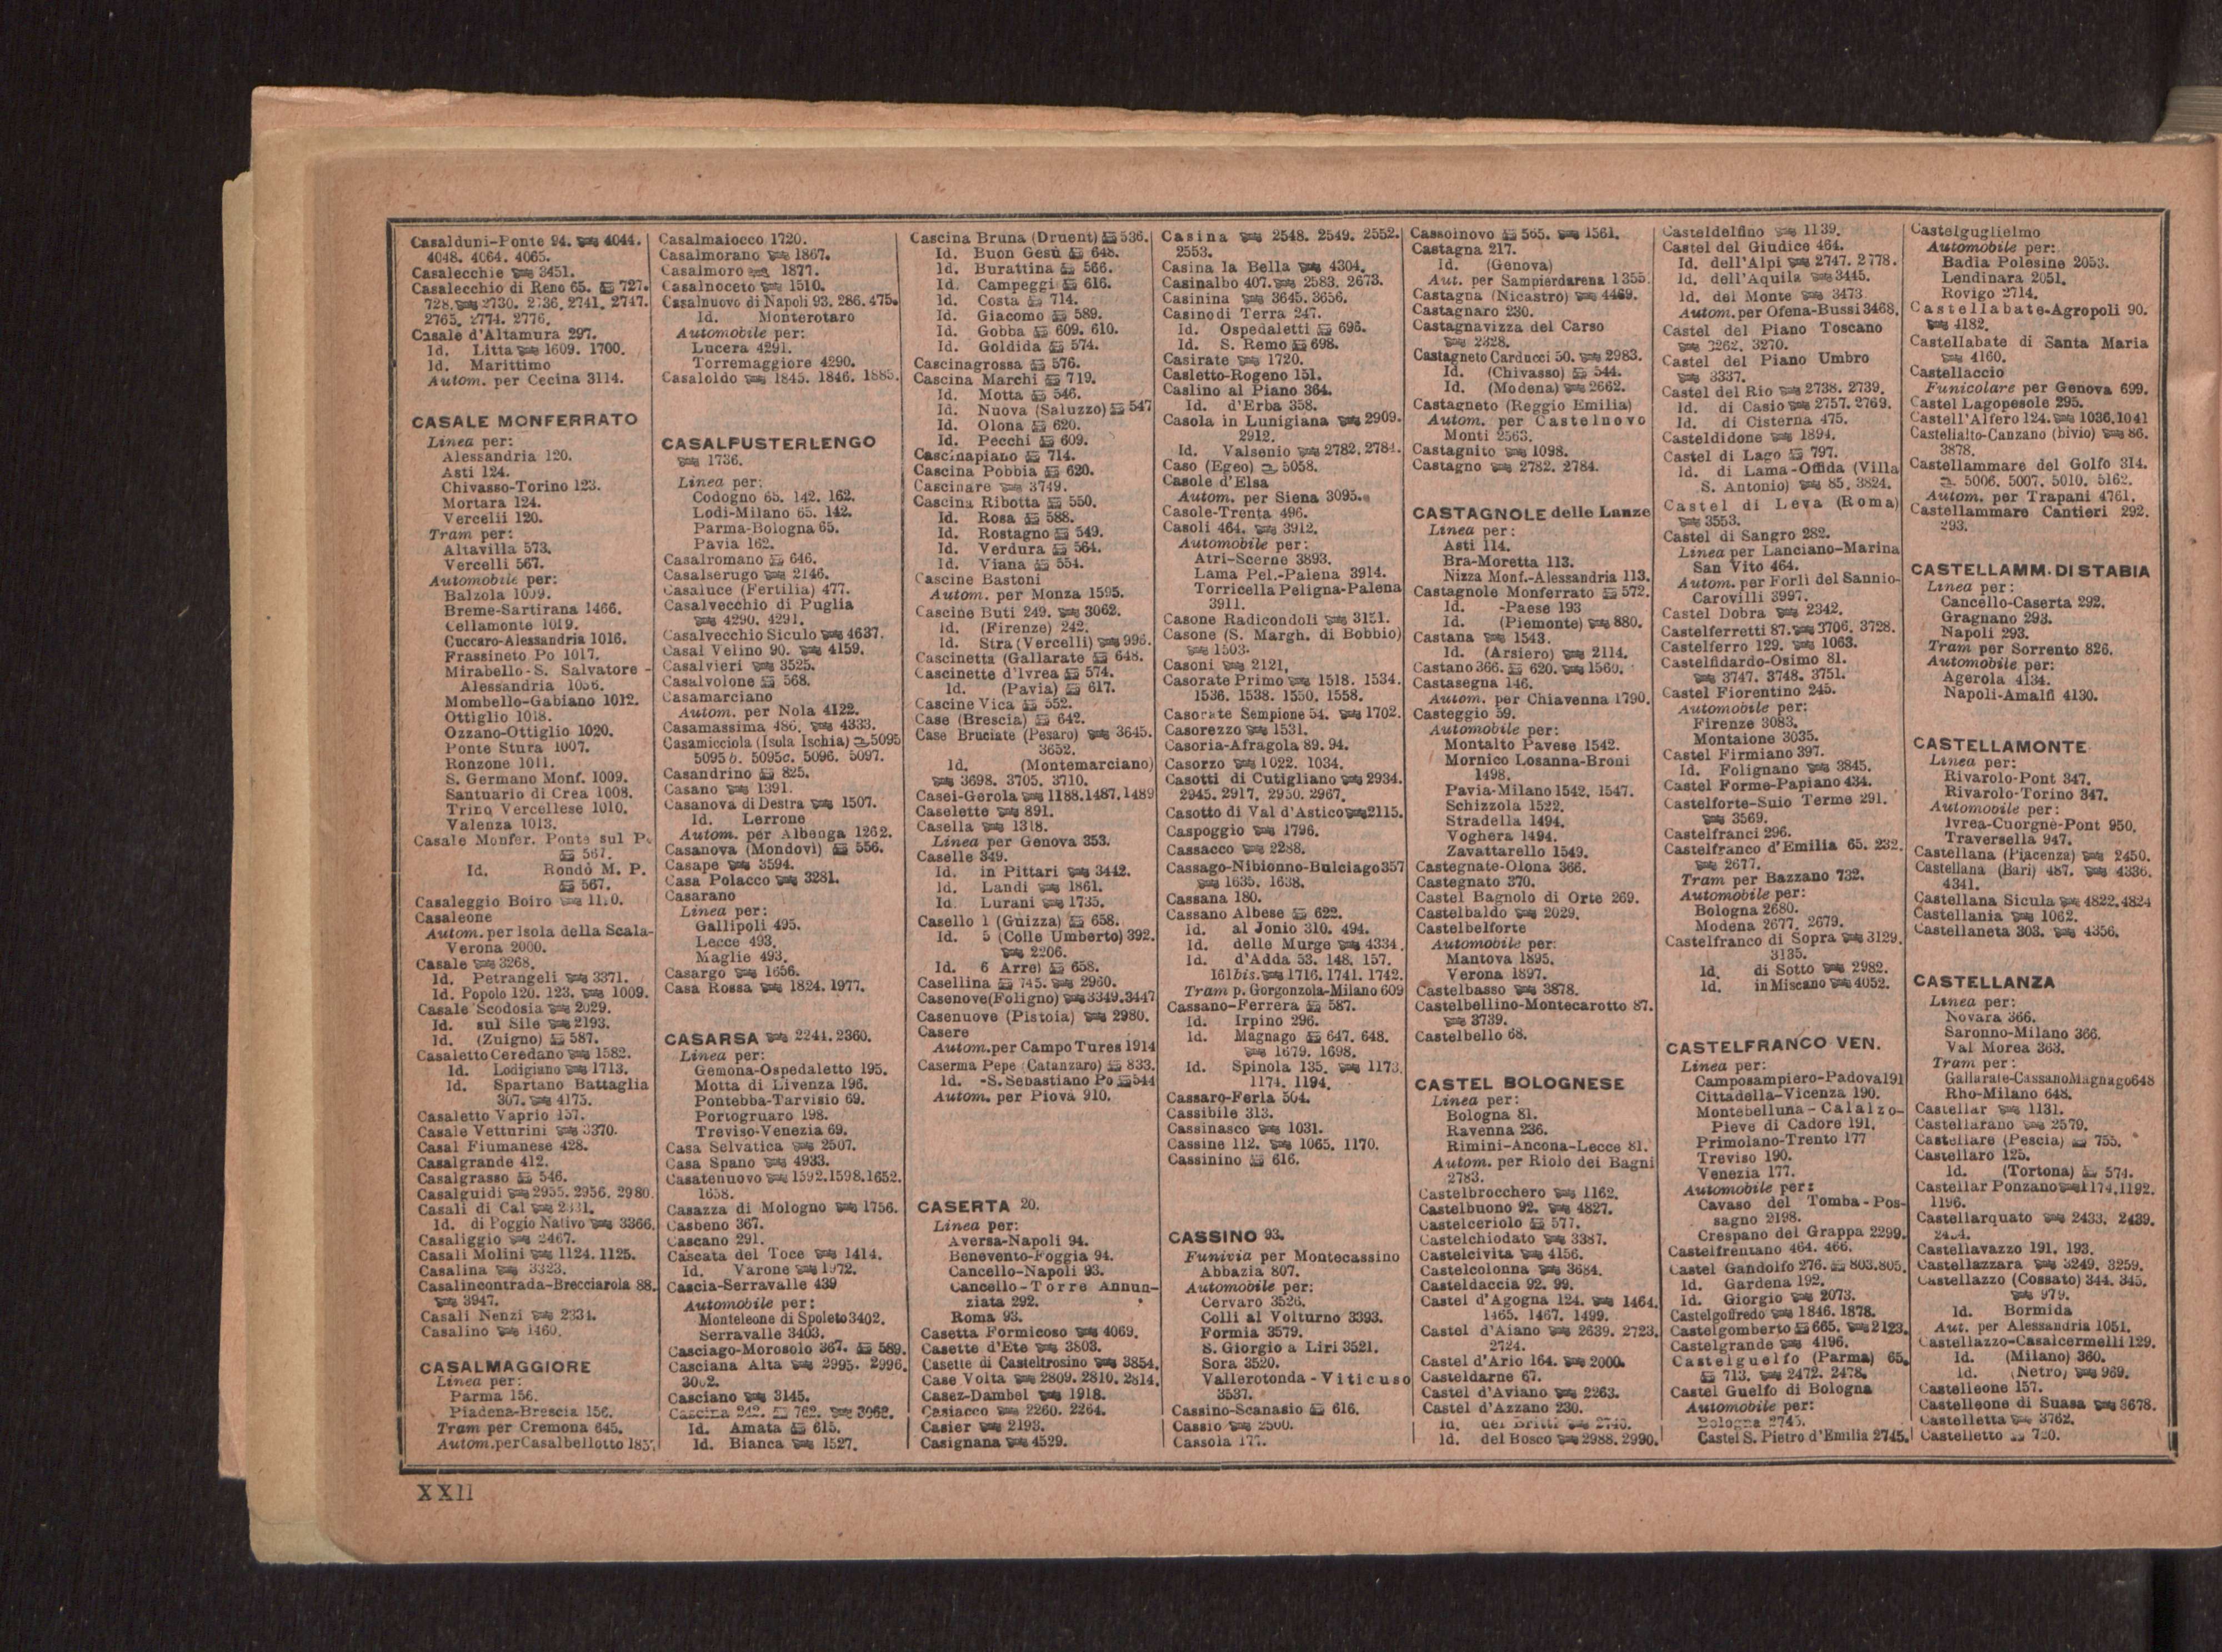 Casalduni-Ponte 94. 4044.
4048. 4064. 4065.
Casalecchie 3451.
Casalecchio di Reno 65. 727.
728. 2730. 2736. 2741. 2747.
2765. 2774. 2776.
Casale d'Altamura 297.
Id. Litta 1609. 1700.
Id. Marittimo
Autom. per Cecina 3114.
CASALE MONFERRATO
Linea per:
Alessandria 120.
Asti 124.
Chivasso-Torino 123.
Mortara 124.
Vercelli 120.
Tram per:
Altavilla 573.
Vercelli 567.
Automobile per:
Balzola 1009.
Breme-Sartirana 1466.
Cellamonte 1019.
Cuccaro-Alessandria 1016.
Frassineto Po 1017.
Mirabello-S. Salvatore-
Alessandria
Mombello-Gabiano 1012.
Ottiglio 1018.
Ozzano-Ottiglio 1020.
Ponte Stura 1007.
Ronzone 1011.
S. Germano Monf. 1009.
Santuario di Crea 1008.
Trino Vercellese 1010.
Valenza 1013.
Casale Monfer. Ponte sul
567.
Id. Rondò M. P.
567.
Casaleggio Boiro
Casaleone
Autom. per Isola della Scala-
Verona 2000.
Casale 3268.
Id. Petrangeli 3371.
Id. Popolo 120. 123. 1009.
Casale Scodosia 2029.
Id. sul Sile 2193.
Id. (Zuigno) 587.
Casaletto Ceredano 1582.
Id. Lodigiano 1713.
Id. Spartano Battaglia
307. 4175.
Casaletto Vaprio 157.
Casale Vetturini 3370.
Casal Fiumanese 428.
Casalgrande 412.
Casalgrasso 546.
Casalguidi 2955. 2956. 2980.
Casali di Cal 2331.
Id. di Poggio Nativo 3366.
Casaliggio 2467.
Casali Molini 1124. 1125.
Casalina 3323.
Casalincontrada-Brecciarola 88.
3947.
Casali Nenzi 2334.
Casalino 1460.
CASALMAGGIORE
Linea per:
Parma 156.
Piadena-Brescia 156.
Tram per Cremona 645.
Autom. per Casalbellotto
Casalmaiocco 1720.
Casalmorano 1867.
Casalmoro 1877.
Casalnoceto 1510.
Casalnuovo di Napoli 93. 286. 475.
Id. Monterotaro
Automobile per:
Lucera 4291.
Torremaggiore 4290.
Casaloldo 1845. 1846. 1885.
CASALPUSTERLENGO
1736.
Linea per:
Codogno 65. 142. 162.
Lodi-Milano 65. 142.
Parma-Bologna 65.
Pavia 162.
Casalromano 646.
Casalserugo 2146.
Casaluce (Fertilia) 477.
Casalvecchio di Puglia
4290. 4291.
Casalvecchio Siculo 4637.
Casal Velino 90. 4159.
Casalvieri 3525.
Casalvolone 568.
Casamarciano
Autom. per Nola 4122.
Casamassima 486. 4333.
Casamicciola (Isola Ischia) 5095
5095 b. 5095c. 5096. 5097.
Casandrino 825.
Casano 1391.
Casanova di Destra 1507.
Id. Lerrone
Autom. per Albenga 1262.
Casanova (Mondovì) 556.
Casape 3594.
Casa Polacco 3281.
Casarano
Linea per:
Gallipoli 495.
Lecce 493.
Maglie 493.
Casargo 1656.
Casa Rossa 1824. 1977.
CASARSA 2241. 2360.
Linea per:
Gemona-Ospedaletto 195.
Motta di Livenza 196.
Pontebba-Tarvisio 69.
Portogruaro 198.
Treviso-Venezia 69.
Casa Selvatica 2507.
Casa Spano 4933.
Casatenuovo 1592. 1598. 1652.
1658.
Casazza di Mologno 1756.
Casbeno 367.
Cascano 291.
Cascata del Toce 1414.
Id. Varone 1972.
Cascia-Serravalle 439
Automobile per:
Monteleone di Spoleto 3402.
Serravalle 3403.
Casciago-Morosolo 367. 589.
Casciana Alta 2995. 2996.
3002.
Casciano 3145.
Cascina 242. 762. 3062.
Id. Amata 615.
Id. Bianca 1527.
Cascina Bruna (Druent) 536.
Id. Buon Gesù 648.
Id. Burattina 566.
Id. Campeggi 616.
Id. Costa 714.
Id. Giacomo 589.
Id. Gobba 609. 610.
Id. Goldida 574.
Cascinagrossa 576.
Cascina Marchi 719.
Id. Motta 546.
Id. Nuova (Saluzzo) 547
Id. Olona 620.
Id. Pecchi 609.
Cascinapiano 714.
Cascina Pobbia 620.
Cascinare 3749.
Cascina Ribotta 550.
Id. Rosa 588.
Id. Rostagno 549.
Id. Verdura 564.
Id. Viana 554.
Cascine Bastoni
Autom. per Monza 1595.
Cascine Buti 249. 3062.
Id. (Firenze) 242.
Id. Stra (Vercelli) 996.
Cascinetta (Gallarate 648.
Cascinette d'Ivrea 574.
Id. (Pavia) 617.
Cascine Vica 552.
Case (Brescia) 642.
Case Bruciate (Pesaro) 3645.
3652.
Id. (Montemarciano)
3698. 3705. 3710.
Casei-Gerola 1188. 1487. 1489
Caselette 891.
Casella 1318.
Linea per Genova 353.
Caselle 349.
Id. in Pittari 3442.
Id. Landi 1861.
Id. Lurani 1735.
Casello 1 (Guizza) 658.
Id. 5 (Colle Umberto) 392.
2206.
Id. 6 Arre) 658.
Casellina 745. 2960.
Casenove (Foligno) 3349. 3447
Casenuove (Pistoia) 2980.
Casere
Autom. per Campo Tures 1914
Caserma Pepe (Catanzaro) 833.
Id. -S. Sebastiano Po 544
Autom. per Piovà 910.
CASERTA 20.
Linea per:
Aversa-Napoli 94.
Benevento-Foggia 94.
Cancello-Napoli 93.
Cancello-Torre Annun-
ziata 292.
Roma 93.
Casetta Formicoso 4069.
Casette d'Ete 3803.
Casette di Casteltrosino 3854.
Case Volta 2809. 2810. 2814.
Casez-Dambel 1918.
Casiacco 2260. 2264.
Casier 2193.
Casignana 4529.
Casina 2548. 2549. 2552.
2553.
Casina la Bella 4304.
Casinalbo 407. 2583. 2673.
Casinina 3645. 3656.
Casino di Terra 247.
Id. Ospedaletti 696.
Id. S. Remo 698.
Casirate 1720.
Casletto-Rogeno 151.
Caslino al Piano 364.
Id. d'Erba 358.
Casola in Lunigiana 2909.
2912.
Id. Valsenio 2782. 2784.
Caso (Egeo) 5058.
Casole d'Elsa
Autom. per Siena 3095.
Casole-Trenta 496.
Casoli 464. 3912.
Automobile per:
Atri-Scerne 3893.
Lama Pel.-Palena 3914.
Torricella Peligna-Palena
3911.
Casone Radicondoli 3151.
Casone (S. Margh. di Bobbio)
1503.
Casoni 2121.
Casorate Primo 1518. 1534.
1536. 1538. 1550. 1558.
Casorate Sempione 54. 1702.
Casorezzo 1531.
Casoria-Afragola 89. 94.
Casorzo 1022. 1034.
Casotti di Cutigliano 2934.
2945. 2917. 2950. 2967.
Casotto di Val d'Astico 2115.
Caspoggio 1796.
Cassacco 2288.
Cassago-Nibionno-Bulciago 357
1635. 1638.
Cassana 180.
Cassano Albese 622.
Id. al Jonio 310. 494.
Id. delle Murge 4334.
Id. d'Adda 53. 148. 157.
161bis. 1716. 1741. 1742.
Tram p. Gorgonzola-Milano 609
Cassano-Ferrera 587.
Id. Irpino 296.
Id. Magnago 647. 648.
1679. 1698.
Id. Spinola 135. 1173.
1174. 1194.
Cassaro-Ferla 504.
Cassibile 313.
Cassinasco 1031.
Cassine 112. 1065. 1170.
Cassinino 616.
CASSINO 93.
Funivia per Montecassino
Abbazia 807.
Automobile per:
Cervaro 3526.
Colli al Volturno 3393.
Formia 3579.
S. Giorgio a Liri 3521.
Sora 3520.
Vallerotonda-Viticuso
3537.
Cassino-Scanasio 616.
Cassio 2500.
Cassola 177.
Cassoinovo 565. 1561.
Castagna 217.
Id. (Genova)
Aut. per Sampierdarena 1355.
Castagna (Nicastro) 4469.
Castagnaro 230.
Castagnavizza del Carso
2328.
Castagneto Carducci 50. 2983.
Id. (Chivasso) 544.
Id. (Modena) 2662.
Castagneto (Reggio Emilia)
Autom. per Castelnovo
Monti 2563.
Castagnito 1098.
Castagno 2782. 2784.
CASTAGNOLE delle Lanze
Linea per:
Asti 114.
Bra-Moretta 113.
Nizza Monf.-Alessandria 113.
Castagnole Monferrato 572.
Id. -Paese 193
Id. (Piemonte) 880.
Castana 1543.
Id. (Arsiero) 2114.
Castano 366. 620. 1560.
Castasegna 146.
Autom. per Chiavenna 1790.
Casteggio 59.
Automobile per:
Montalto Pavese 1542.
Mornico Losanna-Broni
1498.
Pavia-Milano 1542. 1547.
Schizzola 1522.
Stradella 1494.
Voghera 1494.
Zavattarello 1549.
Castegnate-Olona 366.
Castegnato 370.
Castel Bagnolo di Orte 269.
Castelbaldo 2029.
Castelbelforte
Automobile per:
Mantova 1895.
Verona 1897.
Castelbasso 3878.
Castelbellino-Montecarotto 87.
3739.
Castelbello 68.
CASTEL BOLOGNESE
Linea per:
Bologna 81.
Ravenna 236.
Rimini-Ancona-Lecce 81.
Autom. per Riolo dei Bagni
2783.
Castelbrocchero 1162.
Castelbuono 92. 4827.
Castelceriolo 577.
Castelchiodato 3387.
Castelcivita 4156.
Castelcolonna 3684.
Casteldaccia 92. 99.
Castel d'Agogna 124. 1464.
1465. 1467. 1499.
Castel d'Aiano 2639. 2723.
2724.
Castel d'Ario 164. 2000.
Casteldarne 67.
Castel d'Aviano 2263.
Castel d'Azzano 230.
Id. dei Britti
Id. del Bosco 2988. 2990.
Casteldelfino 1139.
Castel del Giudice 464.
Id. dell'Alpi 2747. 2778.
Id. dell'Aquila 3445.
Id. del Monte 3473
Autom. per Ofena-Bussi 3468.
Castel del Piano Toscano
3262. 3270.
Castel del Piano Umbro
3337.
Castel del Rio 2738. 2739.
Id. di Casio 2757. 2769.
Id. di Cisterna 475.
Casteldidone 1894.
Castel di Lago 797.
Id. di Lama-Offida (Villa
S. Antonio) 85. 3824.
Castel di Leva (Roma)
3553.
Castel di Sangro 282.
Linea per Lanciano-Marina
San Vito 464.
Autom. per Forlì del Sannio-
Carovilli 3997.
Castel Dobra 2342.
Castelferretti 87. 3706. 3728.
Castelferro 129. 1063.
Castelfidardo-Osimo 81.
3747. 3748. 3751.
Castel Fiorentino 245.
Automobile per:
Firenze 3083.
Montaione 3035.
Castel Firmiano 397.
Id. Folignano 3845.
Castel Forme-Papiano 434.
Castelforte-Suio Terme 291.
3569.
Castelfranci 296.
Castelfranco d'Emilia 65. 232.
2677.
Tram per Bazzano 732.
Automobile per:
Bologna 2680.
Modena 2677. 2679.
Castelfranco di Sopra 3129.
3135.
Id. di Sotto 2982.
Id. in Miscano 4052.
CASTELFRANCO VEN.
Linea per:
Camposampiero-Padova 191
Cittadella-Vicenza 190.
Montebelluna-Calalzo-
Pieve di Cadore 191.
Primolano-Trento 177
Treviso 190.
Venezia 177.
Automobile per:
Cavaso del Tomba-Pos-
sagno 2198.
Crespano del Grappa 2299.
Castelfrentano 464. 466.
Castel Gandolfo 276. 803. 805.
Id. Gardena 192.
Id. Giorgio 2073.
Castelgoffredo 1846. 1878.
Castelgomberto 665. 2123.
Castelgrande 4196.
Castelguelfo (Parma) 65.
713. 2472. 2478.
Castel Guelfo di Bologna
Automobile per:
Bologna 2745.
Castel S. Pietro d'Emilia 2745.
Castelguglielmo
Automobile per:
Badia Polesine 2053.
Lendinara 2051.
Rovigo 2714.
Castellabate-Agropoli 90.
4182.
Castellabate di Santa Maria
4160.
Castellaccio
Funicolare per Genova 699.
Castel Lagopesole 295.
Castell'Alfero 124. 1036. 1041
Castellalto-Canzano (bivio) 86.
3878.
Castellammare del Golfo 314.
5006. 5007. 5010. 5162.
Autom. per Trapani 4761.
Castellammare Cantieri 292.
293.
CASTELLAMM. DI STABIA
Linea per:
Cancello-Caserta 292.
Gragnano 293.
Napoli 293.
Tram per Sorrento 826.
Automobile per:
Agerola 4134.
Napoli-Amalfi 4130.
CASTELLAMONTE
Linea per:
Rivarolo-Pont 347.
Rivarolo-Torino 347.
Automobile per:
Ivrea-Cuorgnè-Pont 950.
Traversella 947.
Castellana (Piacenza) 2450.
Castellana (Bari) 487. 4336.
4341.
Castellana Sicula 4822. 4824
Castellania 1062.
Castellaneta 303. 4356.
CASTELLANZA
Linea per:
Novara 366.
Saronno-Milano 366.
Val Morea 363.
Tram per:
Gallarate-Cassano Magnago 648
Rho-Milano 648.
Castellar 1131.
Castellarano 2579.
Castellare (Pescia) 755.
Castellaro 125.
Id. (Tortona) 574.
Castellar Ponzano 1174. 1192.
1196.
Castellarquato 2433. 2439.
Castellavazzo 191. 193.
Castellazzara 3249. 3259.
Castellazzo (Cossato) 344. 345.
979.
Id. Bormida
Aut. per Alessandria 1051.
Castellazzo-Casalcermelli 129.
Id. (Milano) 360.
Id. (Netro) 969.
Castelleone 157.
Castelleone di Suasa 3678.
Castelletta 3762.
Castelletto 720.
XXII